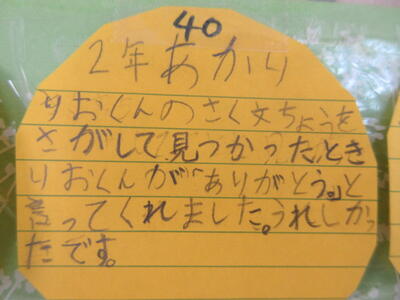 40
2年あかり
りおくんのさく文ちょうを
さがして見つかったとき
りおくんが「ありがとう。」と
言ってくれました。うれしかっ
たです。